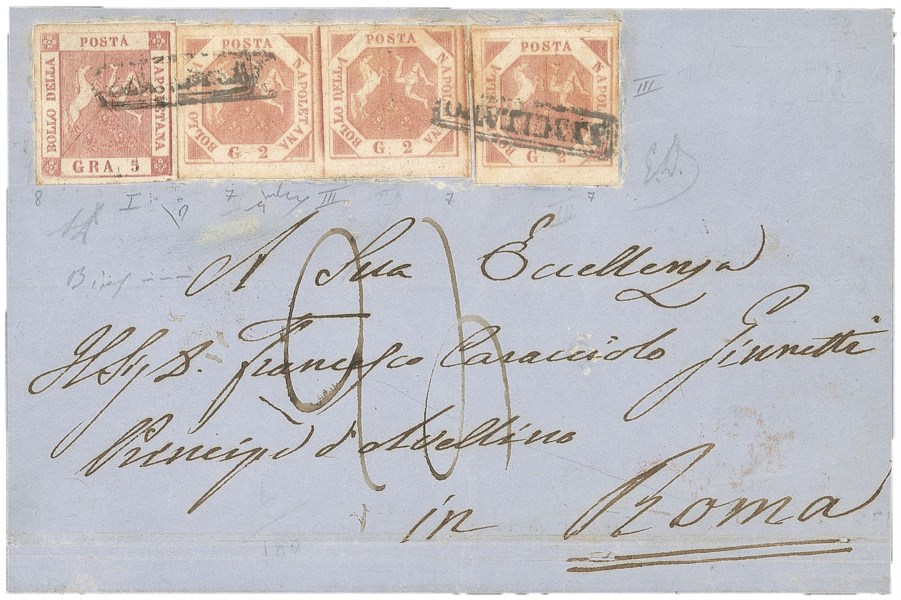 POSTA
BOLLO DELLA
NAPOLETANA
GRA. 5
POSTA
BOLLO DELLA
NAPOLETANA
G. 2
POSTA
BOLLO DELLA
NAPOLETANA
G. 2
POSTA
BOLLO DELLA
NAPOLETANA
G. 2
ANNULLATO
8 I 7 III 7 7
III
E.D.
A Sua Eccellenza
Il Sig. D. Francesco Caracciolo Ginnetti
Principe d'Avellino
in Roma